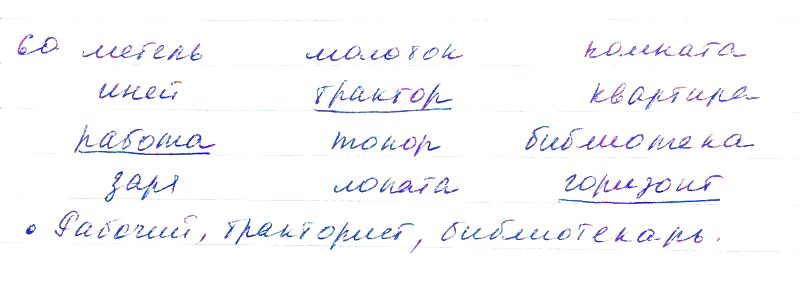 60. метель молоток комната
иней трактор квартира
работа топор библиотека
заря лопата горизонт
• Рабочий, тракторист, библиотекарь.